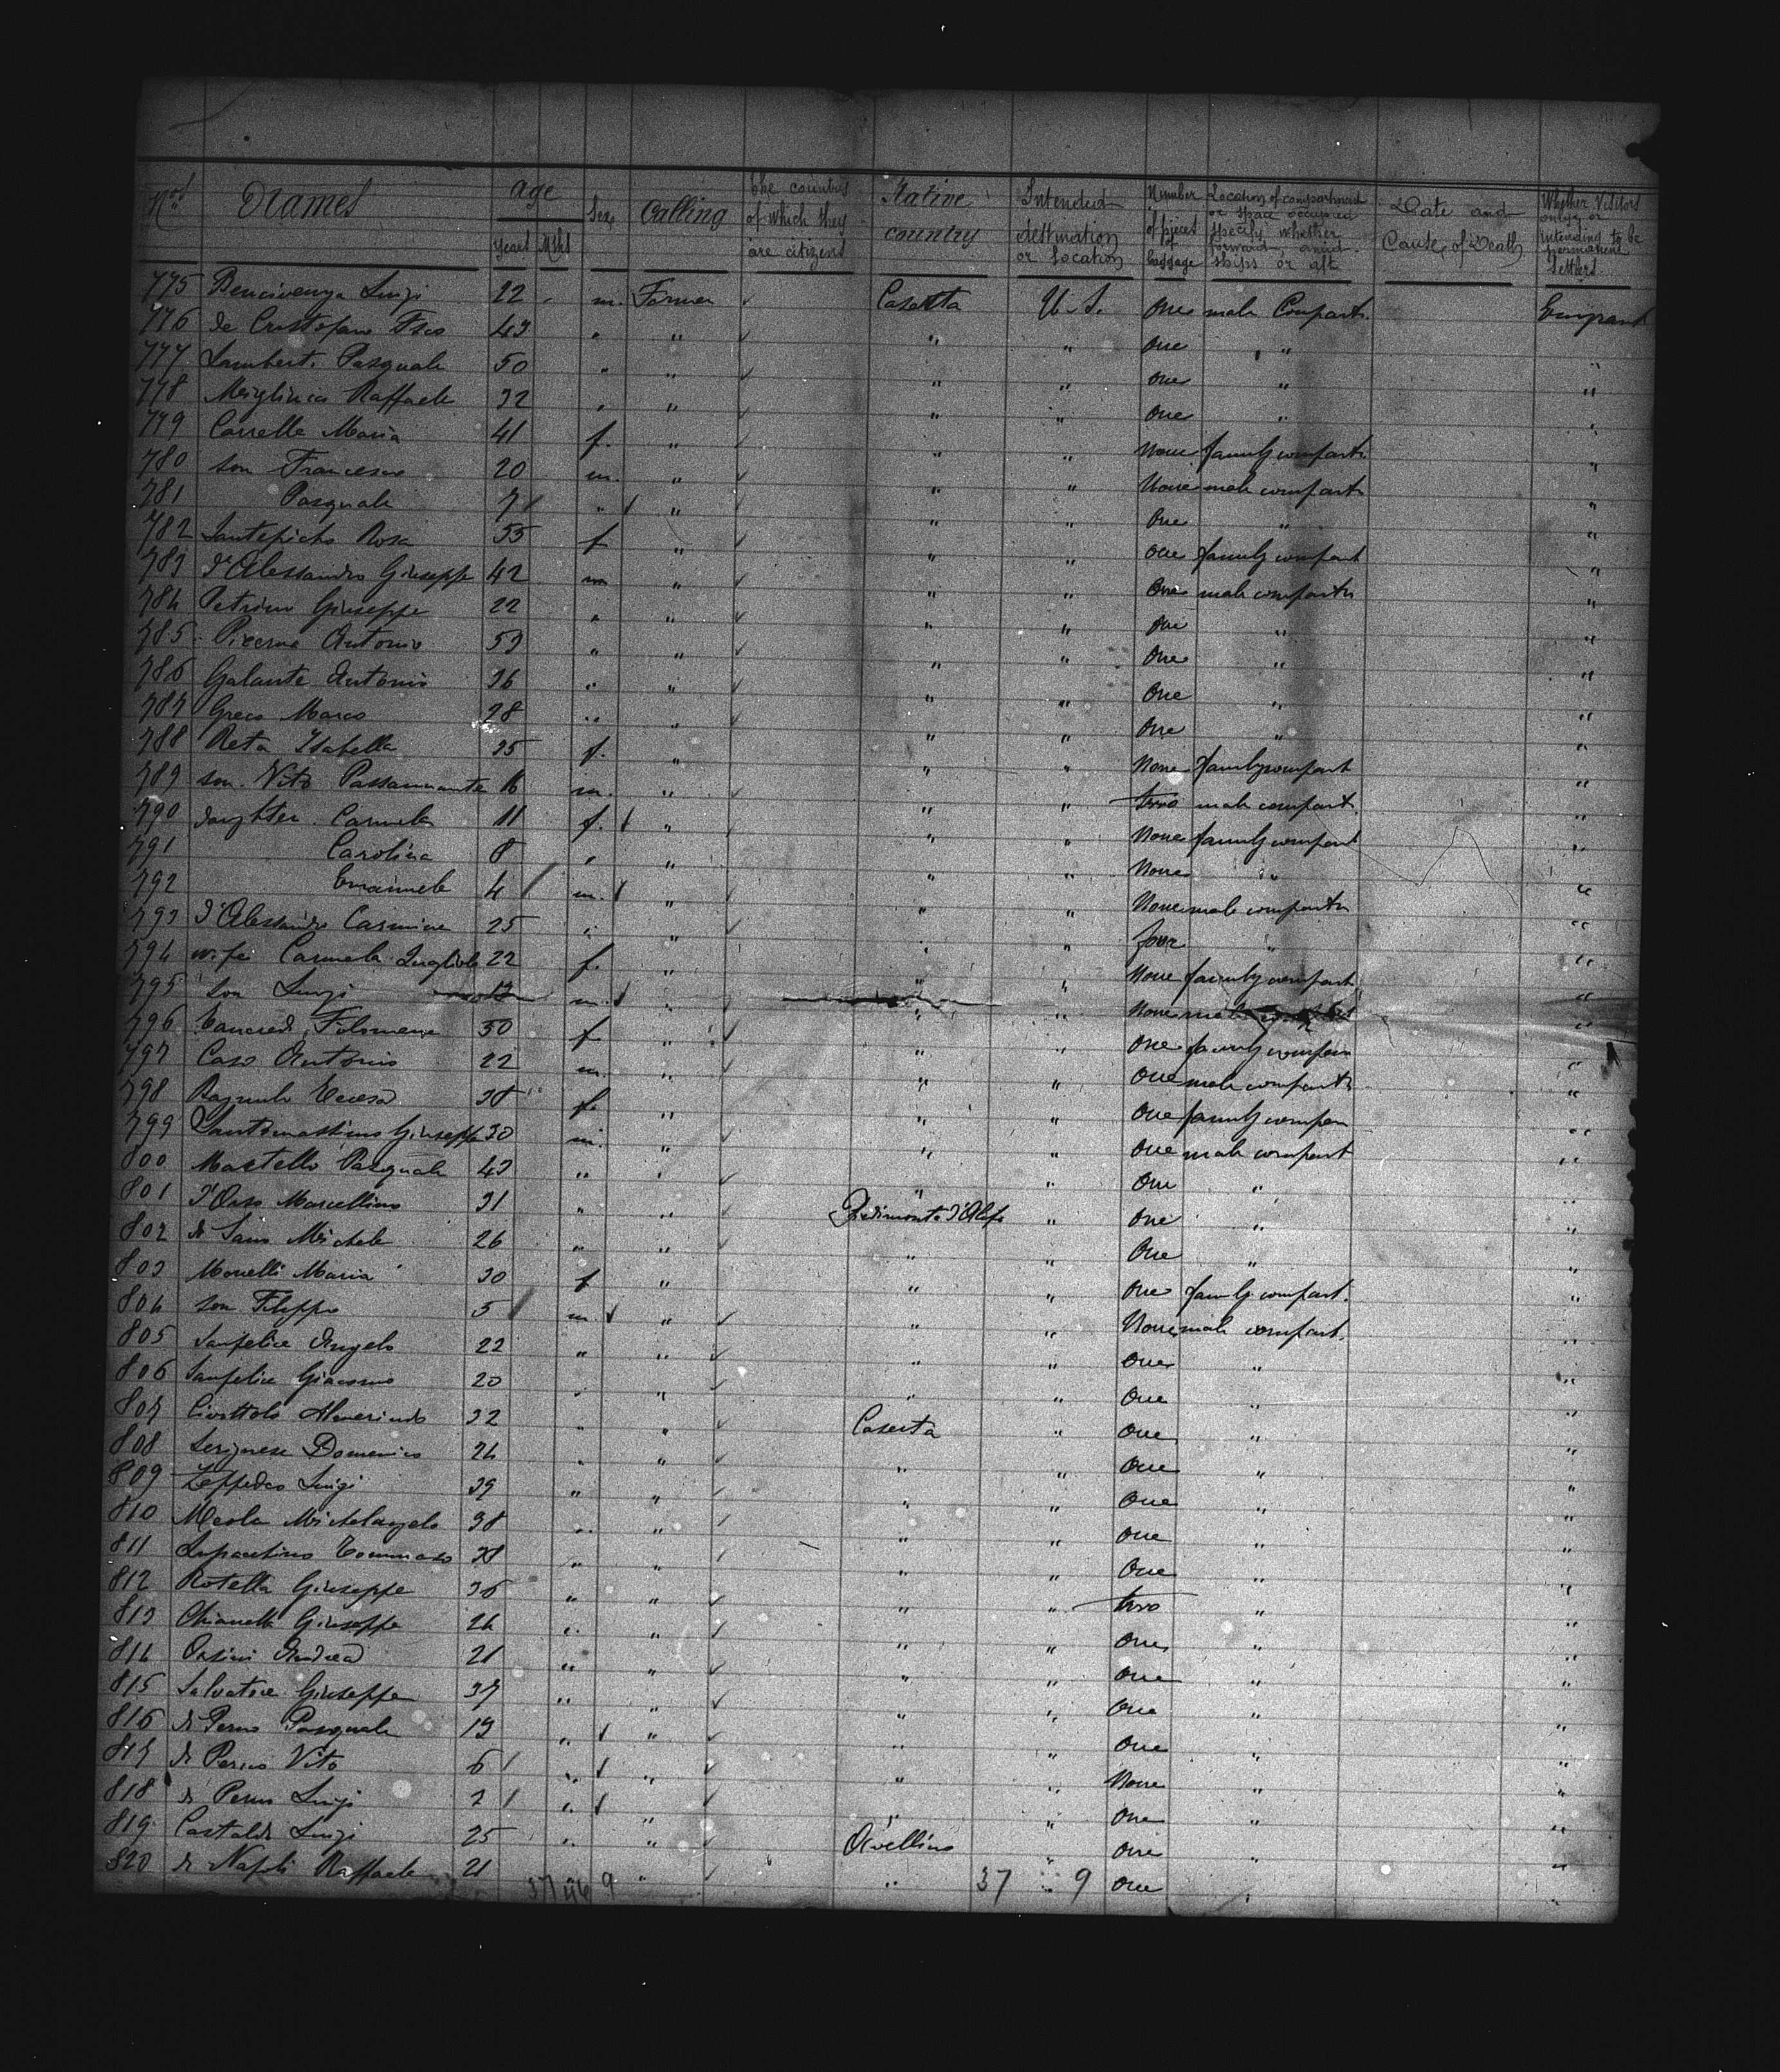 Nos Names Age Years Mths Sex Calling The country of which they are citizens Native country Intended destination or location Number of pieces of baggage Location of compartment or space occupied specify whether forward, amidships or aft Date and Cause of Death Whether Visitors only or intending to be permanent Settlers
775 Bencivenga Luigi 22 m. Farmer Caserta U.S. One male Compart.
776 de Cristofano Fsco 43 " " " " One "
777 Lamberti Pasquale 50 " " " " One " "
778 Raffaele 32 " " " " One " "
779 Maria 41 f. " " " None family compart. "
780 son Francesco 20 m. " " " None male compart. "
781 Pasquale 7 " " " " One " "
782 Rosa 55 f " " " One family compart "
783 D'Alessandro Giuseppe 42 m " " " One male compart "
784 Petrino Giuseppe 22 " " " " One " "
785 Antonio 53 " " " " One " "
786 Galante Antonio 36 " " " " One " "
787 Greco Marco 28 " " " " One " "
788 Reta Isabella 35 f. " " " None family compart "
789 son Vito Passannante 16 m. " " " two male compart. "
790 daughter Carmela 11 f. " " " None family compart "
791 Carolina 8 " " " " None " "
792 Emanuele 4 m. " " " None male compart "
793 D'Alessandro Carmine 25 " " " " four " "
794 wife Carmela 22 f. " " " None family compart "
795 son Luigi m. " " " None male "
796 Filomena 50 f " " " One family "
797 Caso Antonio 22 m. " " " One male compart "
798 38 f. " " " One family "
799 Santomassimo Giuseppe 30 m. " " " One male compart "
800 Martello Pasquale 43 " " " " One " "
801 D'Orso Marcellino 31 " " Piedimonte d'Alife " One " "
802 Michele 26 " " " " One " "
803 Morelli Maria 30 f " " " One family compart. "
804 son Filippo 5 m " " " None male compart. "
805 Sanfelice Angelo 22 " " " " One " "
806 Sanfelice Giacomo 20 " " " " One " "
807 32 " " Caserta " One " "
808 Domenico 24 " " " " One " "
809 Luigi 39 " " " " One " "
810 Meola Michelangelo 38 " " " " One " "
811 Tommaso 38 " " " " One " "
812 Rotella Giuseppe 36 " " " " two " "
813 Chianella Giuseppe 24 " " " " One " "
814 Orsini Andrea 21 " " " " One " "
815 Salvatore Giuseppe 37 " " " " One " "
816 Pasquale 19 " " " " One " "
817 Vito 6 " " " " None " "
818 Luigi " " " " One " "
819 Castaldi Luigi 25 " " Avellino " One " "
820 di Napoli Raffaele 21 " " " One "
37 46 9 37 9